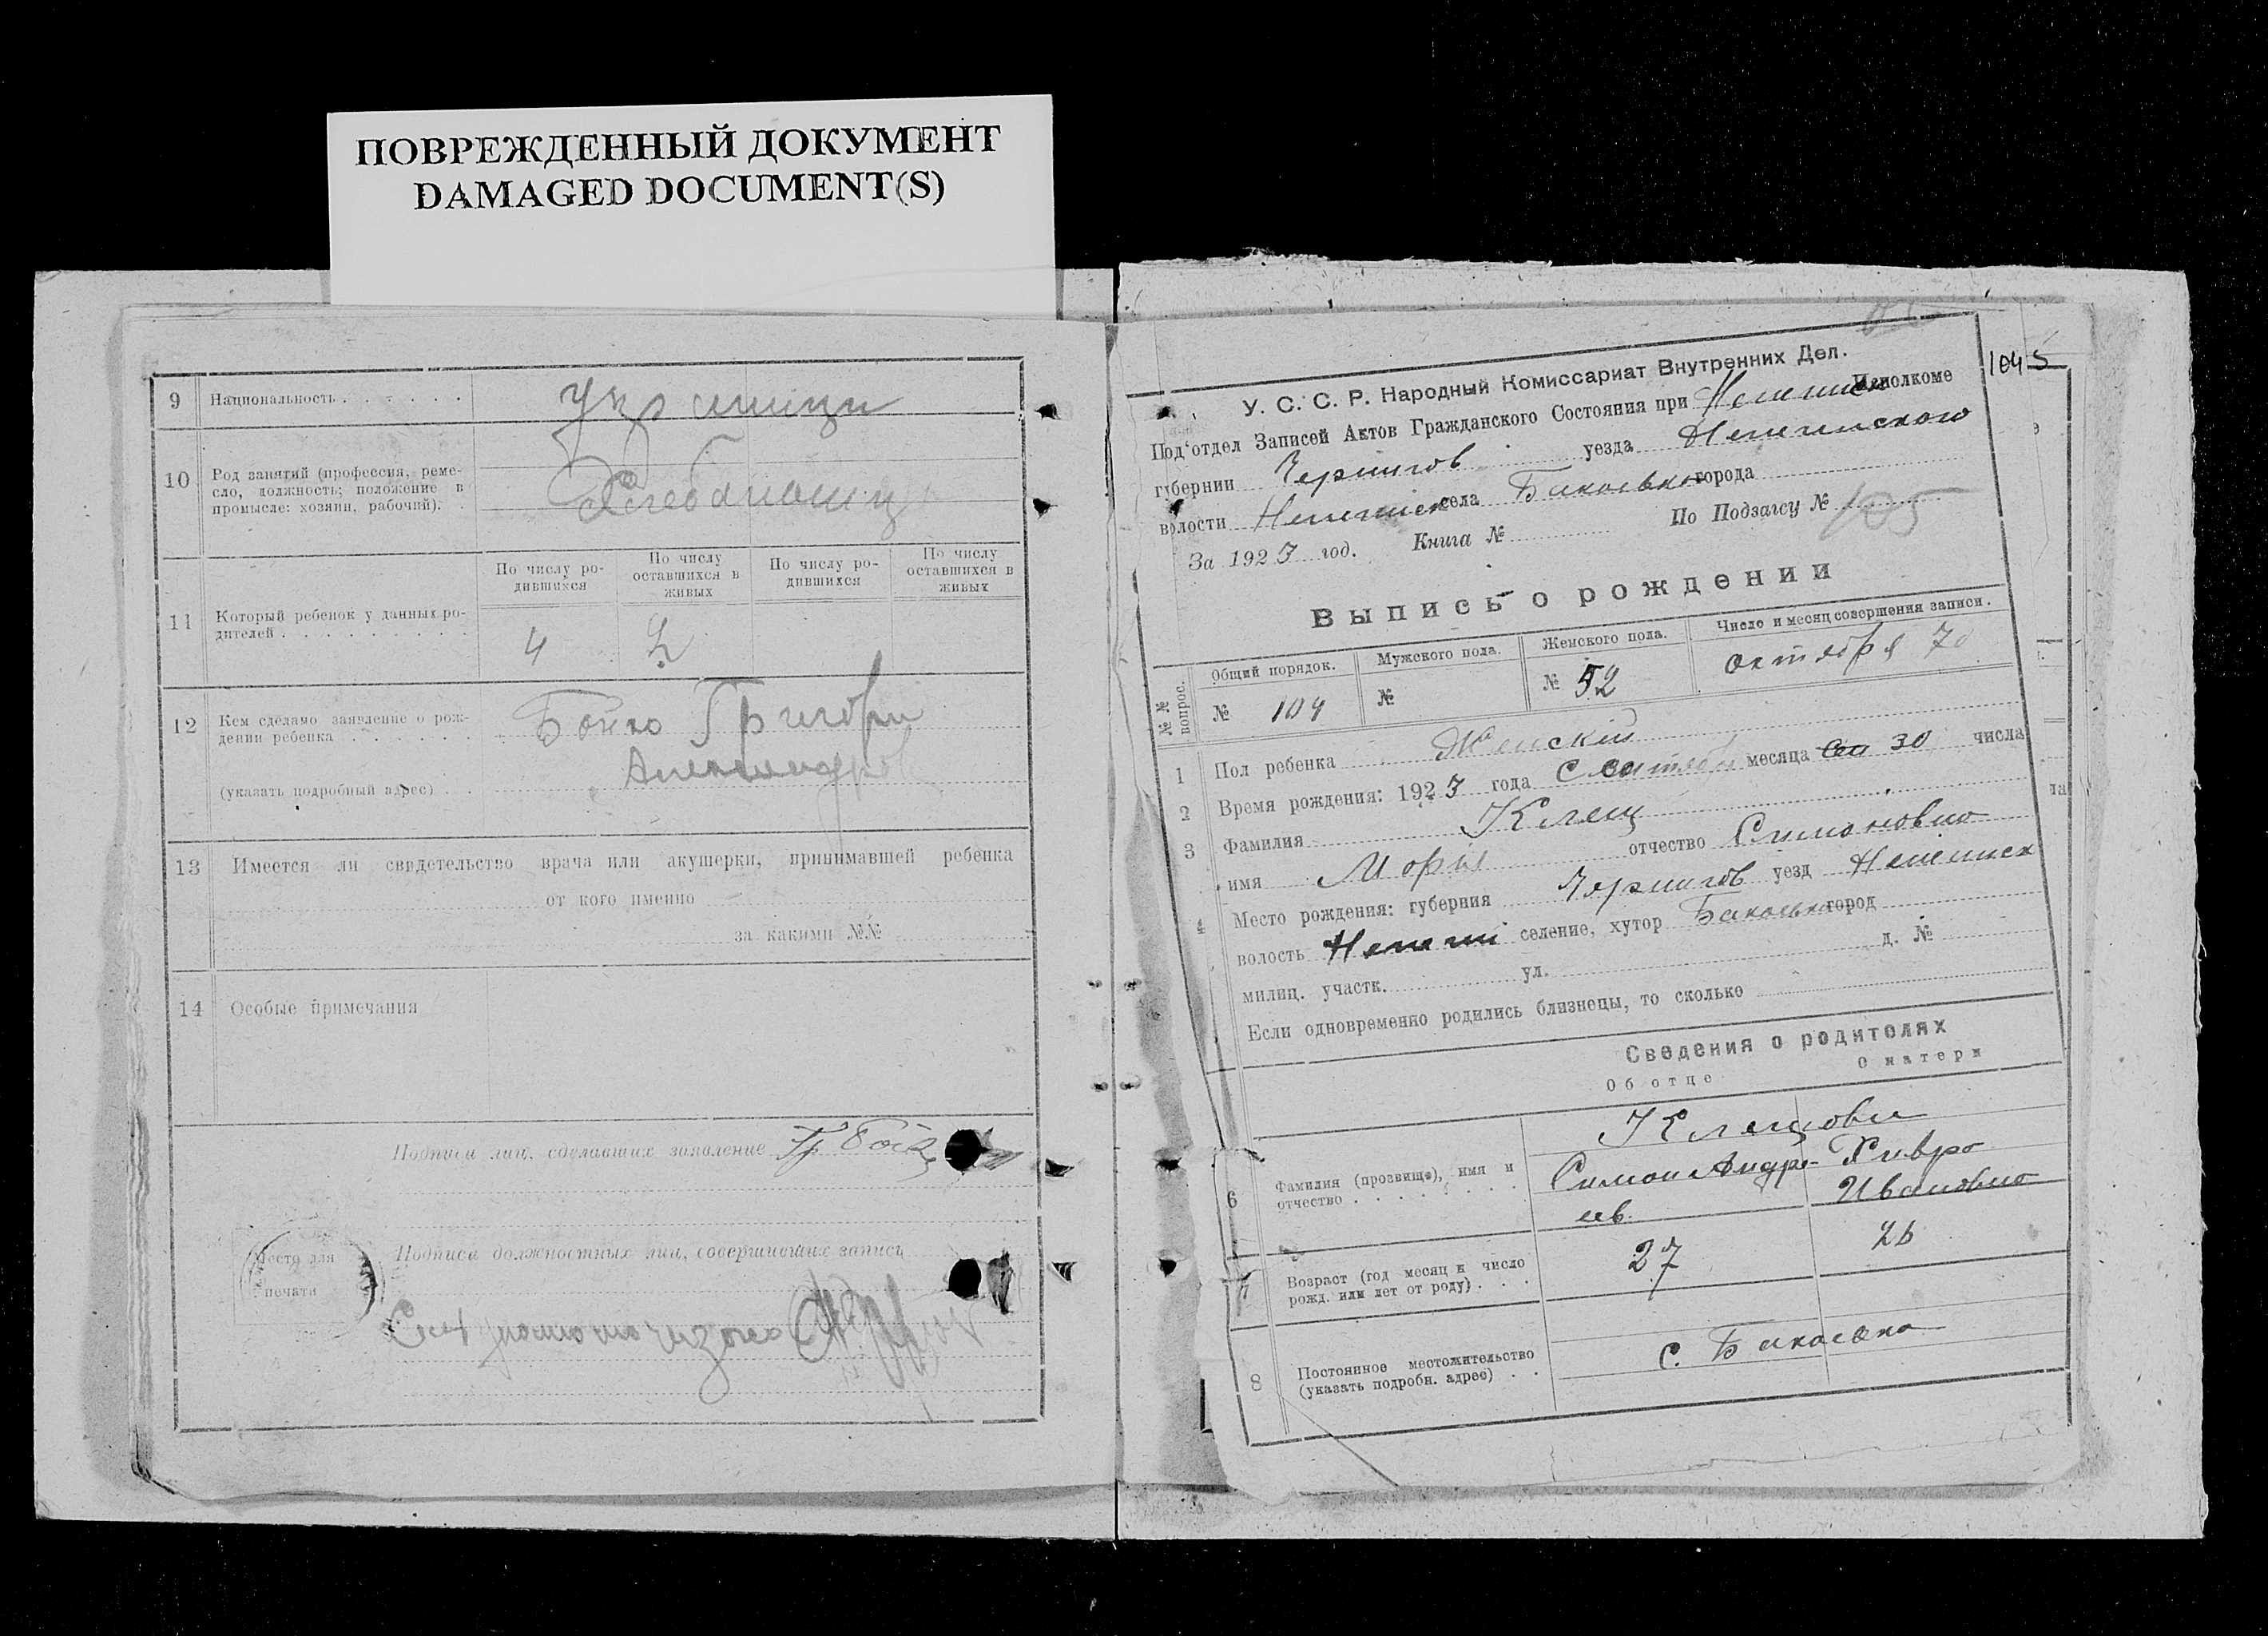 ПОВРЕЖДЕННЫЙ ДОКУМЕНТ
DAMAGED DOCUMENT(S)
9 Национальность . . . . . . Украинци
10 Род занятий (профессия, реме-
сло, должность; положение в
промысле: хозяин, рабочий). .
Хлебапашц
11 Который ребенок у данных ро-
дителей . . . . . . . . .
По числу ро-
дившихся
По числу
оставшихся в
живых
По числу ро-
дившихся
По числу
оставшихся в
живых
4 2
12 Кем сделано заявление о рож-
дении ребенка . . . . . . . Бойко Григори
Александров
(указать подробный адрес) . .
13 Имеется ли свидетельство врача или акушерки, принимавшей ребенка
от кого именно
за какими №№
14 Особые примечания
Подписи лиц, сделавших заявление Гр Бойк
Место для
печати
Подписи должностных лиц, совершивших запись
1045
У. С. С. Р. Народный Комиссариат Внутренних Дел.
Под'отдел Записей Актов Гражданского Состояния при Исполкоме
губернии Чернигов уезда
волости села города
За 1923 год. Книга № По Подзагсу № 105
Выпись о рождении
№ № вопрос.
Общий порядок. Мужского пола. Женского пола. Число и месяц совершения записи.
№ 104 № № 52 октября 70
1 Пол ребенка Женский
2 Время рождения: 1923 года Сентября месяца 30 числа
3 Фамилия Клещ
имя Мория отчество Симоновно
4 Место рождения: губерния Чернигов уезд
волость селение, хутор город
милиц. участк. ул. д. №
Если одновременно родились близнецы, то сколько
Сведения о родителях
Об отце О матери
6 Фамилия (прозвище), имя и
отчество . . . . . . . .
Клещови
Симон Андре-
ев.
Хивро
Ивановно
7 Возраст (год месяц и число
рожд. или лет от роду) . . . 27 26
8 Постоянное местожительство
(указать подробн. адрес) . . с.